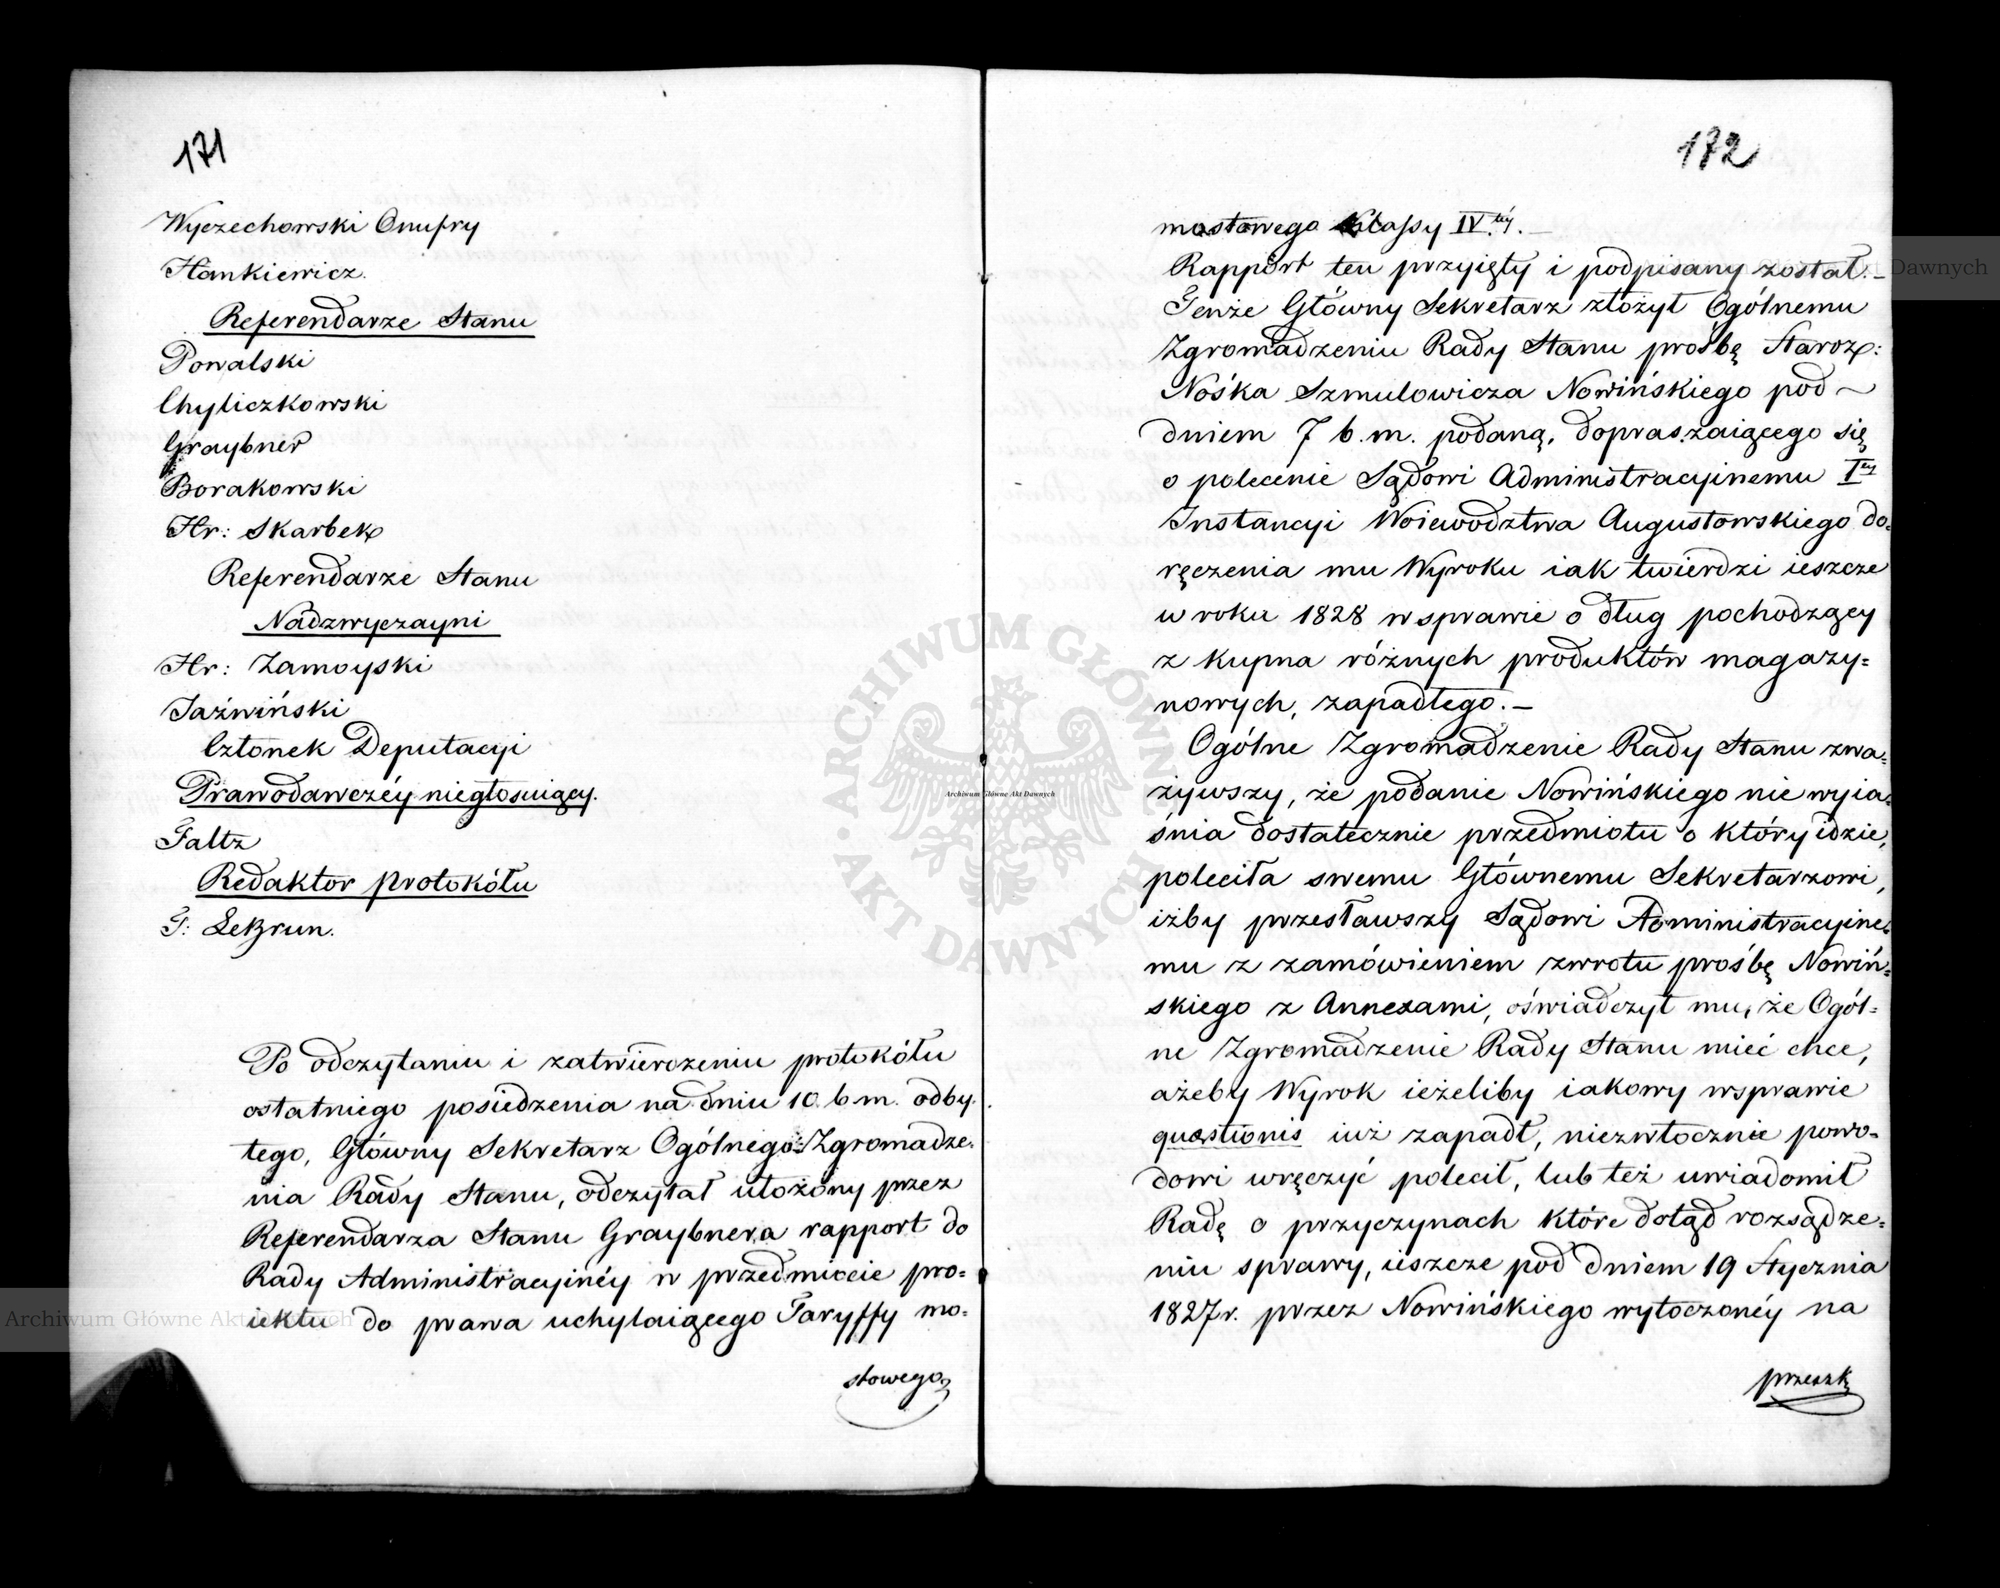 171
Wyczechowski Onufry
Hankiewicz.
Referendarze Stanu
Powalski
Chyliczkowski
Graybner
Borakowski
Hr: Skarbek
Referendarze Stanu
Nadzwyczayni
Hr: Zamoyski
Jaźwiński
Członek Deputacyi
Prawodawczéy niegłosuiący.
Faltz
Redaktor protokółu
F: LeBrun.
Po odczytaniu i zatwierdzeniu protokółu
ostatniego posiedzenia na dniu 10 b. m. odby-
tego, Główny Sekretarz Ogólnego Zgromadze-
nia Rady Stanu, odczytał ułożony przez
Referendarza Stanu Graybnera rapport do
Rady Administracyinéy w przedmiocie pro=
iektu do prawa uchylaiącego Taryffy mo=
stowego
172
mostowego Klassy IV.téy. —
Rapport ten przyięty i podpisany został. —
Tenże Główny Sekretarz złożył Ogólnemu
Zgromadzeniu Rady Stanu prośbę Staroz:
Nośka Szmulowicza Nowińskiego pod ~
dniem 7 b. m. podaną, dopraszaiącego się
o polecenie Sądowi Administracyinemu Iey
Instancyi Woiewództwa Augustowskiego do=
ręczenia mu Wyroku iak twierdzi ieszcze
w roku 1828 w sprawie o dług pochodzący
z kupna różnych produktów magazy=
nowych, zapadłego. —
Ogólne Zgromadzenie Rady Stanu zwa=
żywszy, że podanie Nowińskiego nie wyia=
śnia dostatecznie przedmiotu o który idzie,
poleciła swemu Głównemu Sekretarzowi,
iżby przesławszy Sądowi Administracyine=
mu z zamówieniem zwrotu prośbę Nowiń=
skiego z Annexami, oświadczył mu, że Ogól=
ne Zgromadzenie Rady Stanu mieć chce,
ażeby Wyrok ieżeliby iakowy w sprawie
quaestionis iuż zapadł, niezwłocznie powo=
dowi wręczyć polecił, lub też uwiadomił
Radę o przyczynach które dotąd rozsądze=
niu sprawy, ieszcze pod dniem 19 Stycznia
1827 r. przez Nowińskiego wytoczonéy na
przeszk
ARCHIWUM GŁÓWNE • AKT DAWNYCH
Archiwum Główne Akt Dawnych
Archiwum Główne Akt Dawnych
Archiwum Główne Akt Dawnych